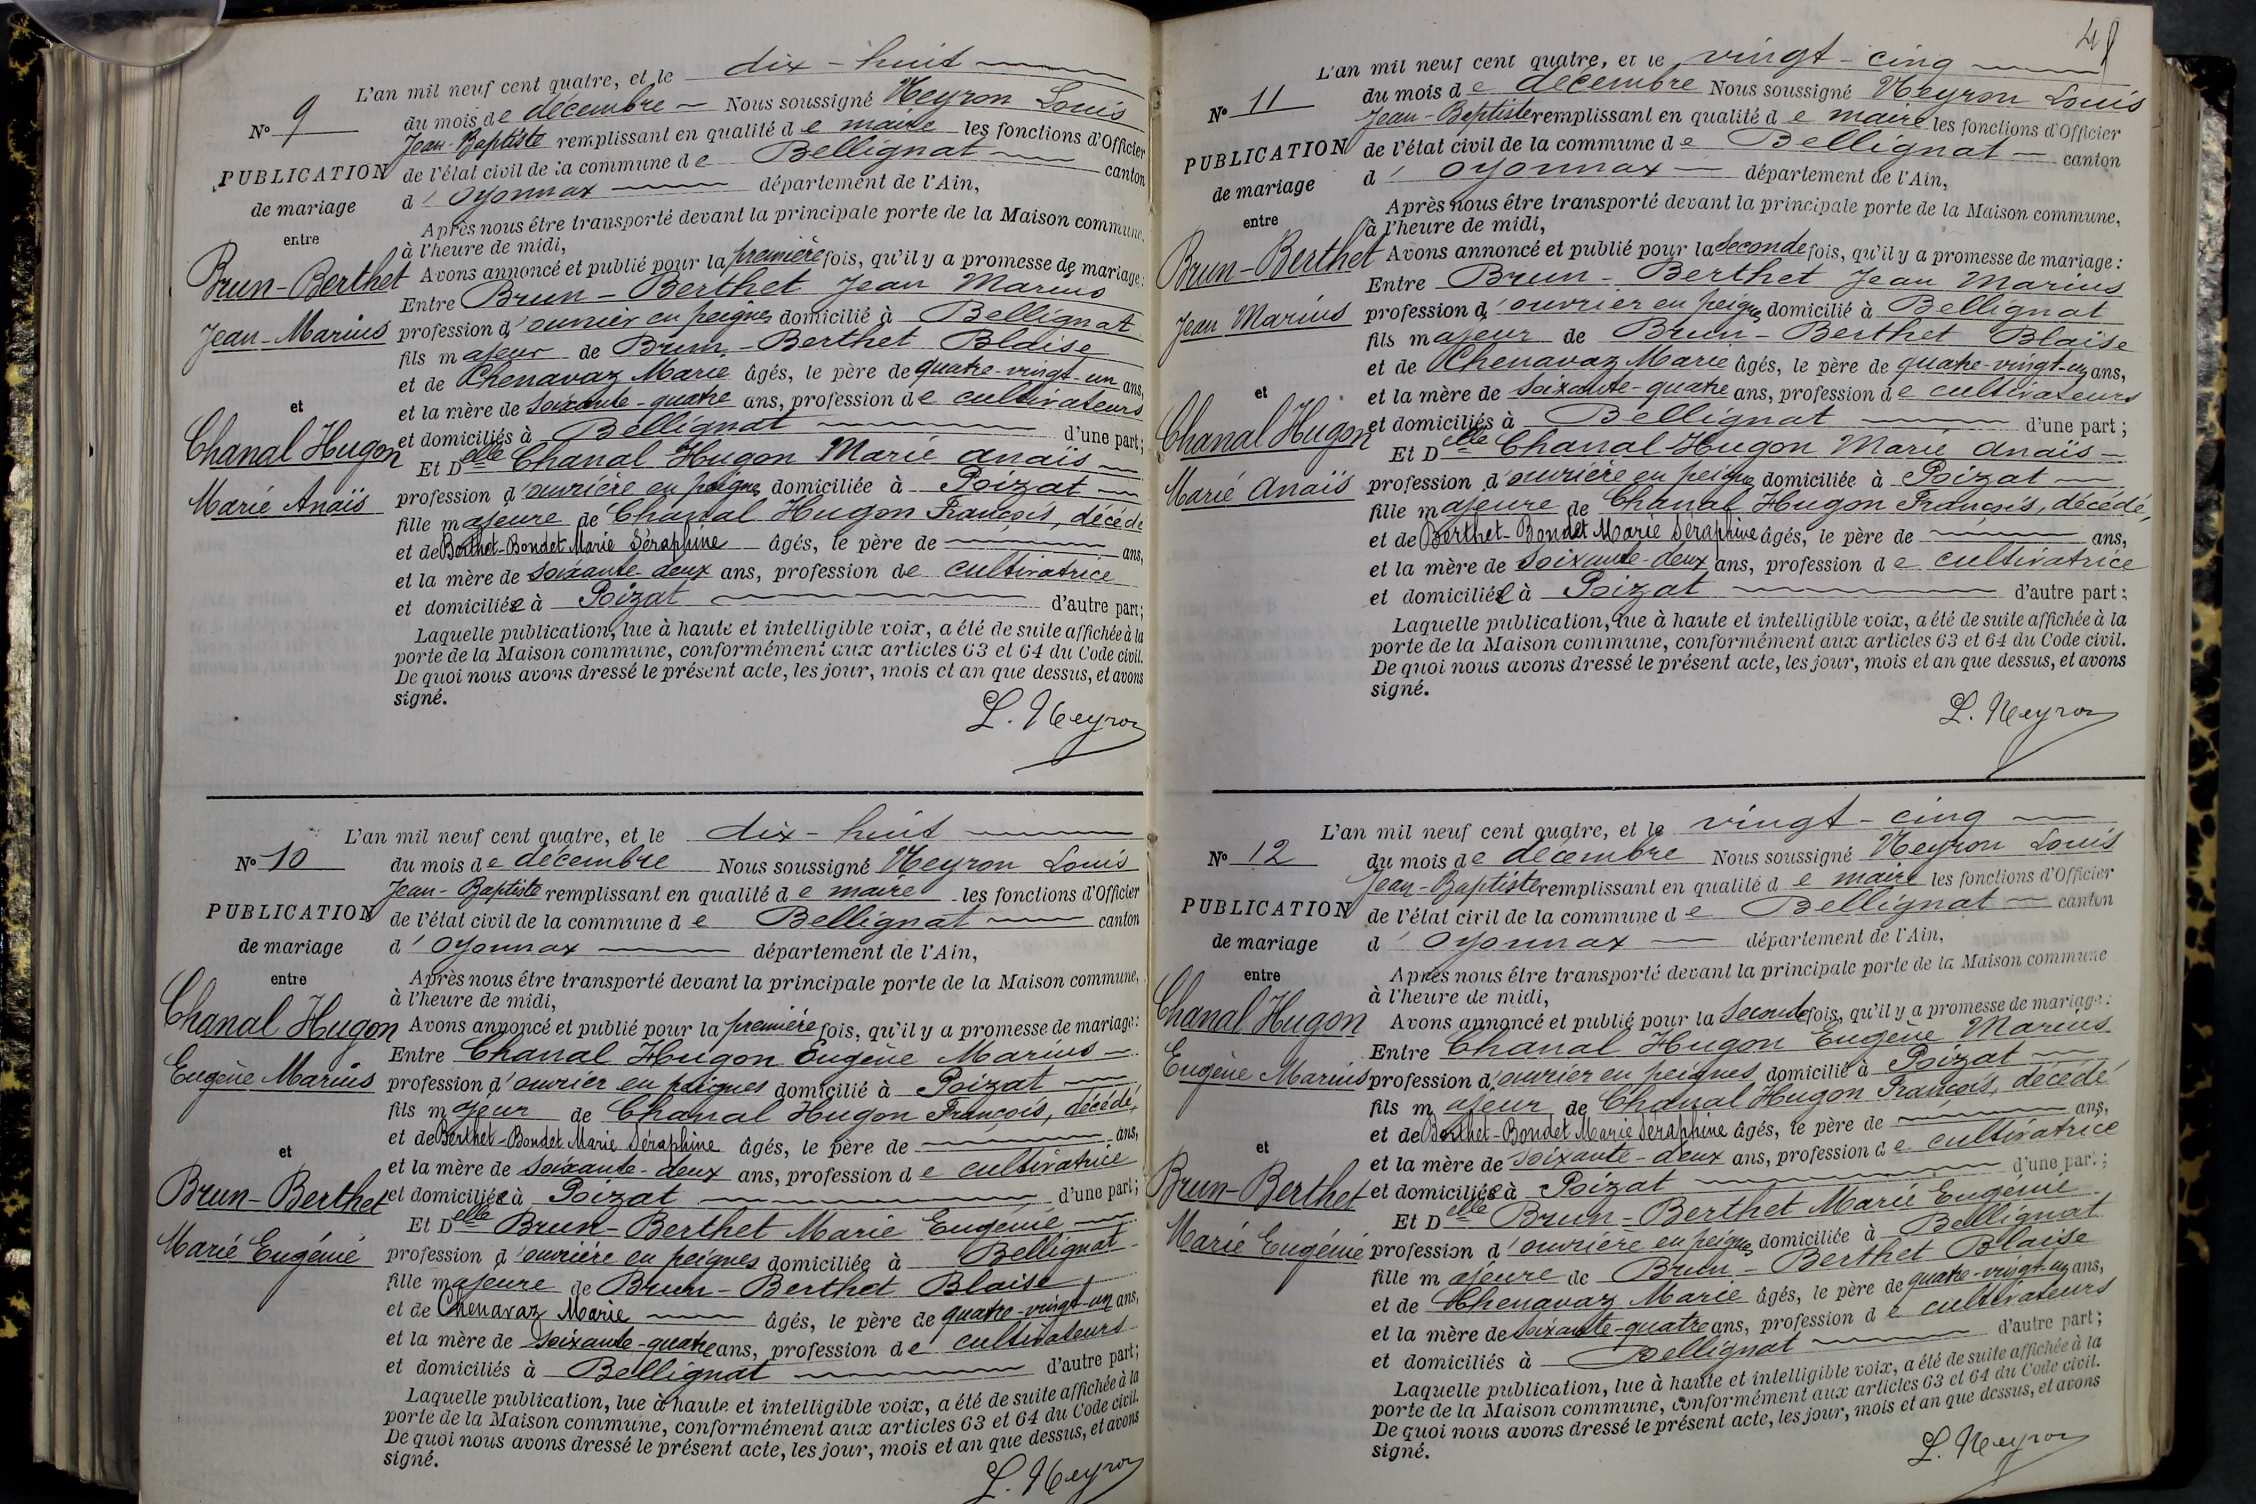 L'an mil neuf cent quatre, et le dix-huit
N° 9
du mois de décembre Nous soussigné Neyron Louis
Jean-Baptiste remplissant en qualité de maire les fonctions d'Officier
PUBLICATION
de l'état civil de la commune de Bellignat canton
de mariage
d'Oyonnax département de l'Ain,
entre
Après nous être transporté devant la principale porte de la Maison commune,
à l'heure de midi,
Brun-Berthet
Avons annoncé et publié pour la première fois, qu'il y a promesse de mariage:
Entre Brun-Berthet Jean Marius
Jean-Marius
profession d'ouvrier en peignes domicilié à Bellignat
fils majeur de Brun-Berthet Blaise
et de Chenavaz Marie âgés, le père de quatre-vingt-un ans,
et
et la mère de soixante-quatre ans, profession de cultivateurs
Chanal Hugon
et domiciliés à Bellignat d'une part;
Et Delle Chanal Hugon Marie Anaïs
Marie Anaïs
profession d'ouvrière en peignes domiciliée à Poizat
fille majeure de Chanal Hugon François, décédé
et de Berthet-Bondet Marie Séraphine âgés, le père de ans,
et la mère de soixante-deux ans, profession de cultivatrice
et domiciliée à Poizat d'autre part;
Laquelle publication, lue à haute et intelligible voix, a été de suite affichée à la
porte de la Maison commune, conformément aux articles 63 et 64 du Code civil.
De quoi nous avons dressé le présent acte, les jour, mois et an que dessus, et avons
signé.
L. Neyron
L'an mil neuf cent quatre, et le dix-huit
N° 10
du mois de décembre Nous soussigné Neyron Louis
Jean-Baptiste remplissant en qualité de maire les fonctions d'Officier
PUBLICATION
de l'état civil de la commune de Bellignat canton
de mariage
d'Oyonnax département de l'Ain,
entre
Après nous être transporté devant la principale porte de la Maison commune,
à l'heure de midi,
Chanal Hugon
Avons annoncé et publié pour la première fois, qu'il y a promesse de mariage:
Entre Chanal Hugon Eugène Marius
Eugène Marius
profession d'ouvrier en peignes domicilié à Poizat
fils majeur de Chanal Hugon François, décédé,
et de Berthet-Bondet Marie Séraphine âgés, le père de ans,
et
et la mère de soixante-deux ans, profession de cultivatrice
Brun-Berthet
et domiciliée à Poizat d'une part;
Et Delle Brun-Berthet Marie Eugénie
Marie Eugénie
profession d'ouvrière en peignes domiciliée à Bellignat
fille majeure de Brun-Berthet Blaise
et de Chenavaz Marie âgés, le père de quatre-vingt-un ans,
et la mère de soixante-quatre ans, profession de cultivateurs
et domiciliés à Bellignat d'autre part;
Laquelle publication, lue à haute et intelligible voix, a été de suite affichée à la
porte de la Maison commune, conformément aux articles 63 et 64 du Code civil.
De quoi nous avons dressé le présent acte, les jour, mois et an que dessus, et avons
signé.
L. Neyron
L'an mil neuf cent quatre, et le vingt-cinq
N° 11
du mois de décembre Nous soussigné Neyron Louis
Jean-Baptiste remplissant en qualité de maire les fonctions d'Officier
PUBLICATION
de l'état civil de la commune de Bellignat canton
de mariage
d'Oyonnax département de l'Ain,
entre
Après nous être transporté devant la principale porte de la Maison commune,
à l'heure de midi,
Brun-Berthet
Avons annoncé et publié pour la seconde fois, qu'il y a promesse de mariage:
Entre Brun-Berthet Jean Marius
Jean Marius
profession d'ouvrier en peignes domicilié à Bellignat
fils majeur de Brun-Berthet Blaise
et de Chenavaz Marie âgés, le père de quatre-vingt-un ans,
et
et la mère de soixante-quatre ans, profession de cultivateurs
Chanal Hugon
et domiciliés à Bellignat d'une part;
Et Delle Chanal-Hugon Marie Anaïs
Marie Anaïs
profession d'ouvrière en peignes domiciliée à Poizat
fille majeure de Chanal Hugon François, décédé,
et de Berthet-Bondet Marie Séraphine âgés, le père de ans,
et la mère de soixante-deux ans, profession de cultivatrice
et domiciliée à Poizat d'autre part;
Laquelle publication, lue à haute et intelligible voix, a été de suite affichée à la
porte de la Maison commune, conformément aux articles 63 et 64 du Code civil.
De quoi nous avons dressé le présent acte, les jour, mois et an que dessus, et avons
signé.
L. Neyron
L'an mil neuf cent quatre, et le vingt-cinq
N° 12
du mois de décembre Nous soussigné Neyron Louis
Jean-Baptiste remplissant en qualité de maire les fonctions d'Officier
PUBLICATION
de l'état civil de la commune de Bellignat canton
de mariage
d'Oyonnax département de l'Ain,
entre
Après nous être transporté devant la principale porte de la Maison commune
à l'heure de midi,
Chanal Hugon
Avons annoncé et publié pour la seconde fois, qu'il y a promesse de mariage:
Entre Chanal Hugon Eugène Marius
Eugène Marius
profession d'ouvrier en peignes domicilié à Poizat
fils majeur de Chanal Hugon François, décédé
et de Berthet-Bondet Marie Séraphine âgés, le père de ans,
et
et la mère de soixante-deux ans, profession de cultivatrice
Brun-Berthet
et domiciliée à Poizat d'une part;
Et Delle Brun-Berthet Marie Eugénie
Marie Eugénie
profession d'ouvrière en peignes domiciliée à Bellignat
fille majeure de Brun-Berthet Blaise
et de Chenavaz Marie âgés, le père de quatre-vingt-un ans,
et la mère de soixante-quatre ans, profession de cultivateurs
et domiciliés à Bellignat d'autre part;
Laquelle publication, lue à haute et intelligible voix, a été de suite affichée à la
porte de la Maison commune, conformément aux articles 63 et 64 du Code civil.
De quoi nous avons dressé le présent acte, les jour, mois et an que dessus, et avons
signé.
L. Neyron